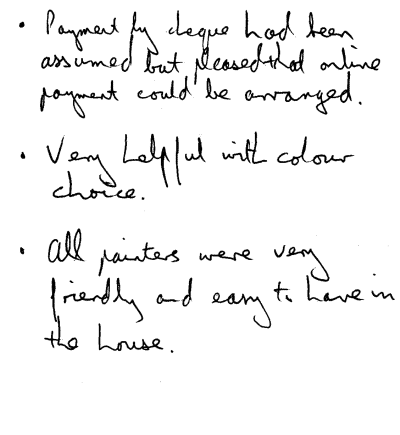 • Payment by cheque had been
assumed but pleased that online
payment could be arranged.
• Very helpful with colour
choice.
• All painters were very
friendly and easy to have in
the house.